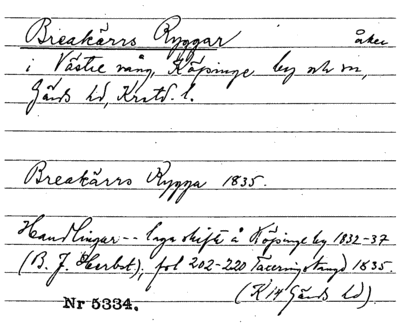 Breakärrs Ryggar åker
i Västre vång, Köpinge by och sn,
Gärds hd, Krstd. l.
Breakärrs Rygga 1835.
Handlingar -- laga skifte å Köpinge by 1832-37
(B. J. Herbst), fol 202-220 Taxeringslängd 1835.
(K 14 Gärds hd).
Nr 5334.